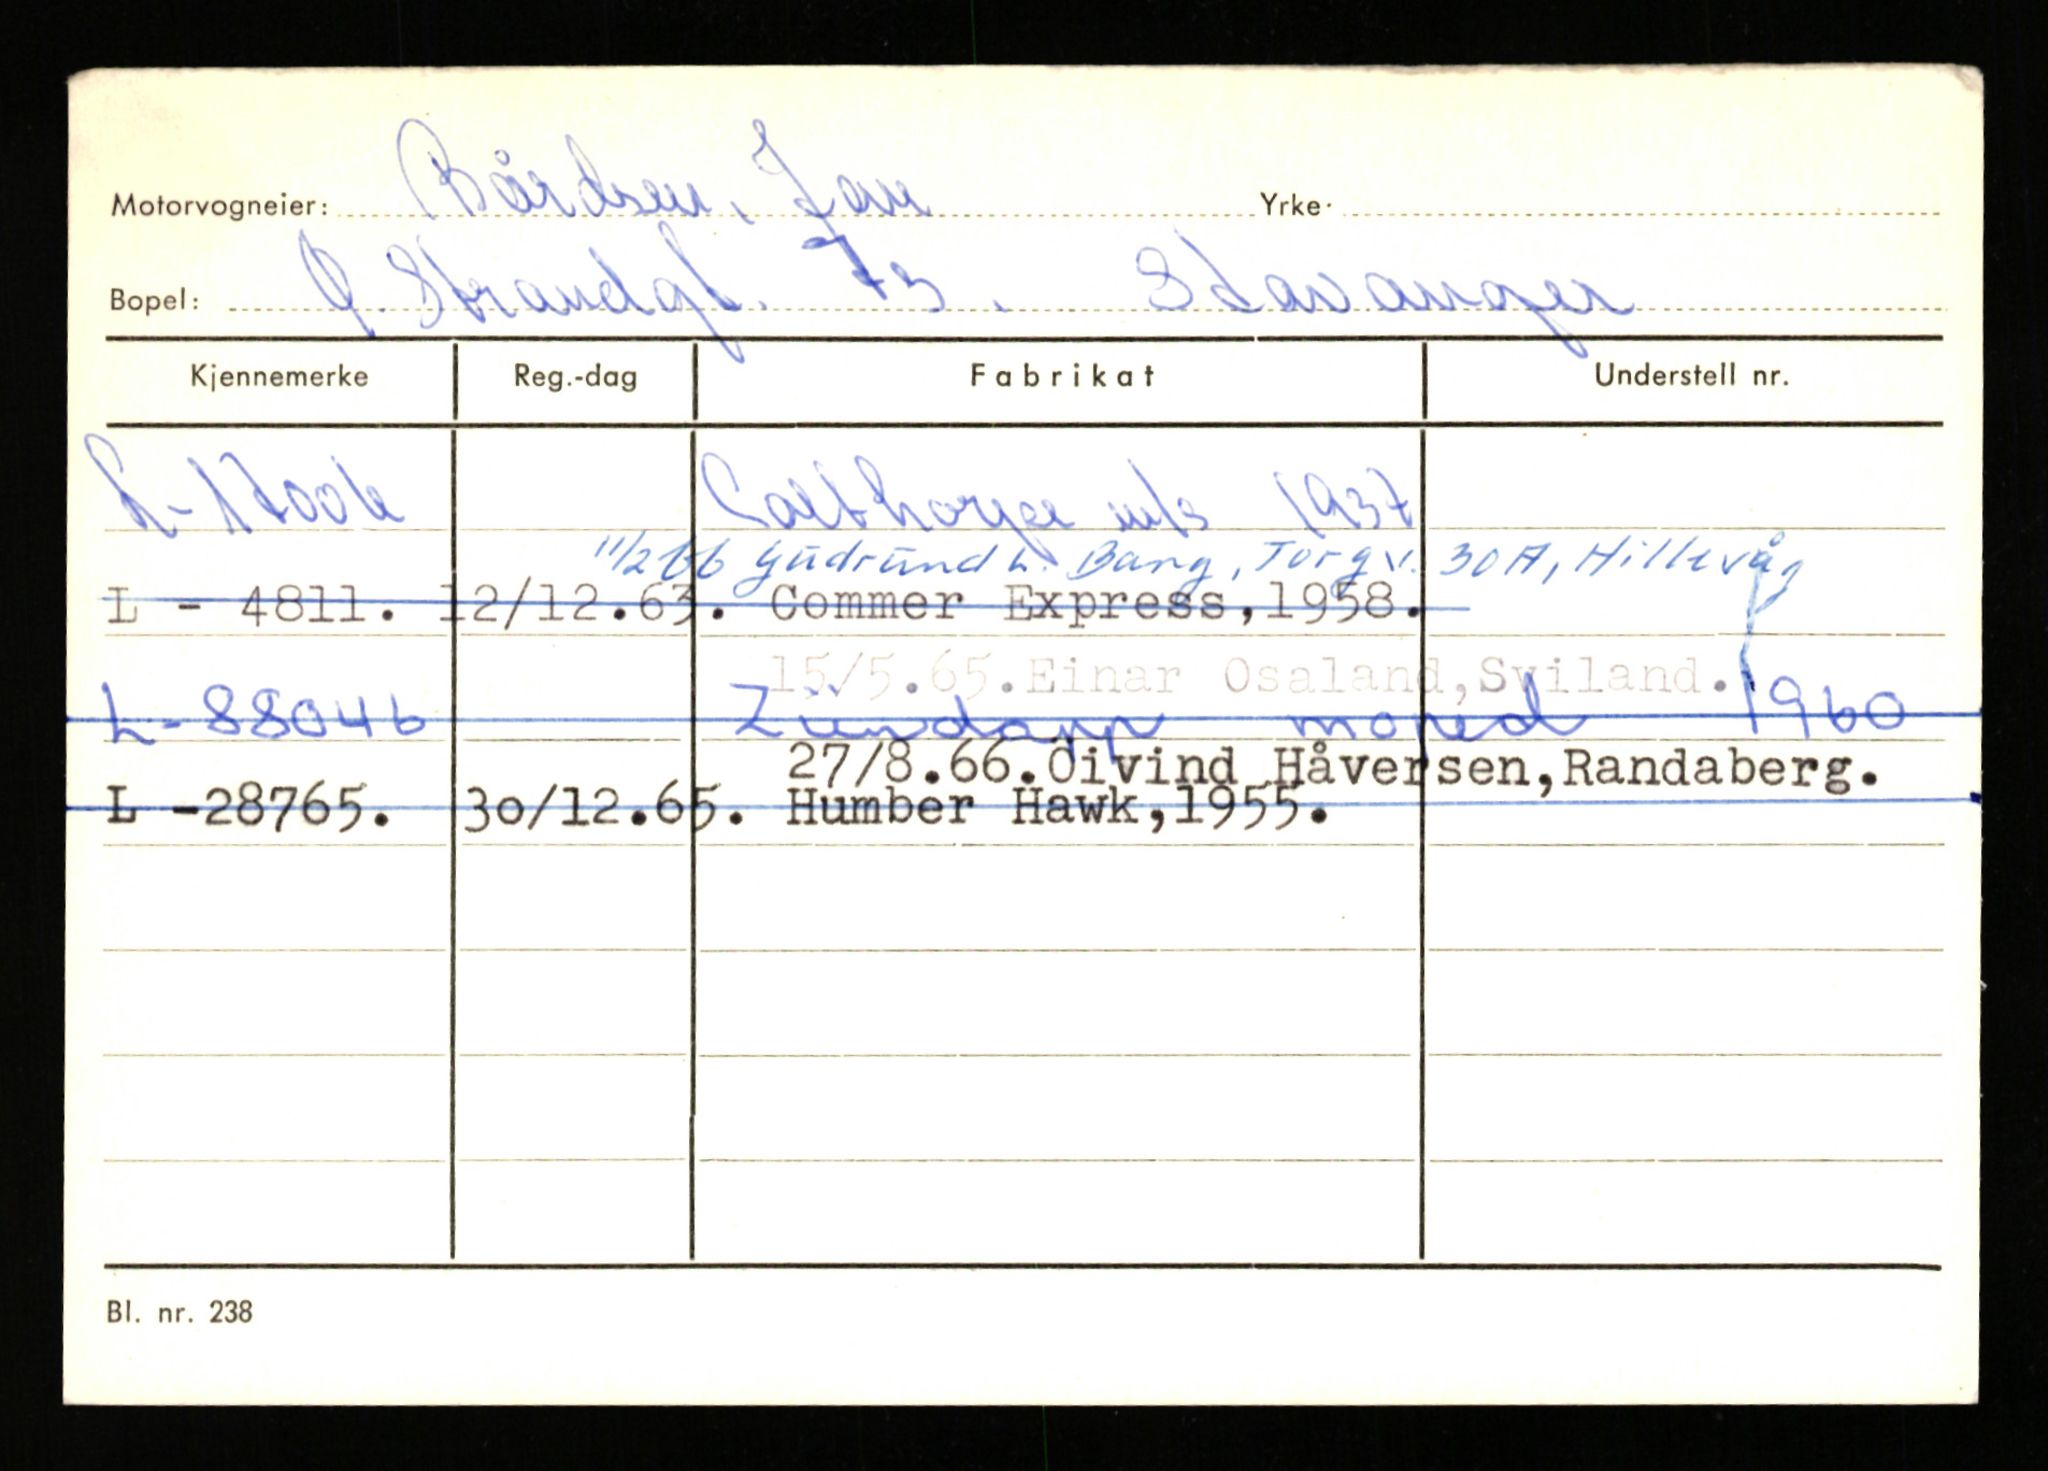 Motorvogneier: Bårdsen, Jan Yrke:
Bopel: Ø. Strandgt. 73. Stavanger
Kjennemerke Reg.-dag Fabrikat Understell nr.
L-17006 Calthorpe m/s 1937
11/2 66 Gudrund L. Bang, Torgv. 30 A, Hillevåg
L - 4811. 12/12.63. Commer Express,1958.
15/5.65.Einar Osaland,Sviland.
L-88046 Zündapp moped 1960
27/8.66.Öivind Håversen,Randaberg.
L -28765. 30/12.65. Humber Hawk,1955.
Bl. nr. 238